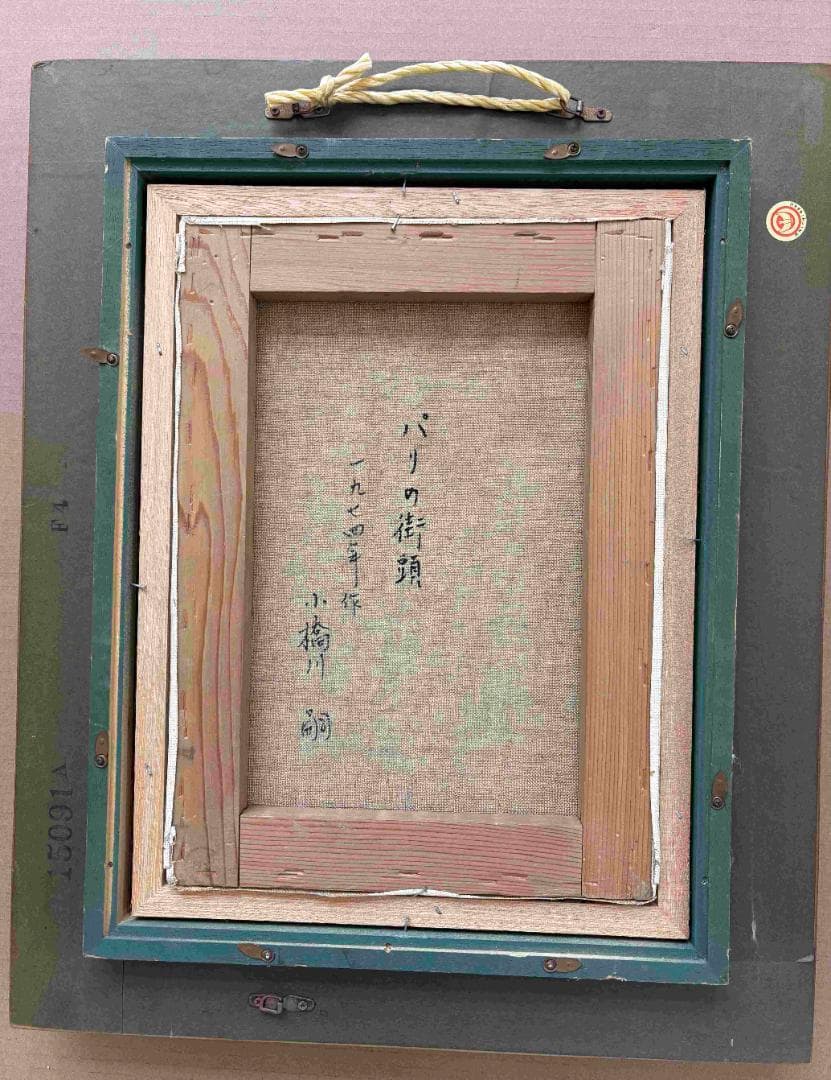 パリの街頭
一九七四年作
小橋川 嗣
F4
15091A